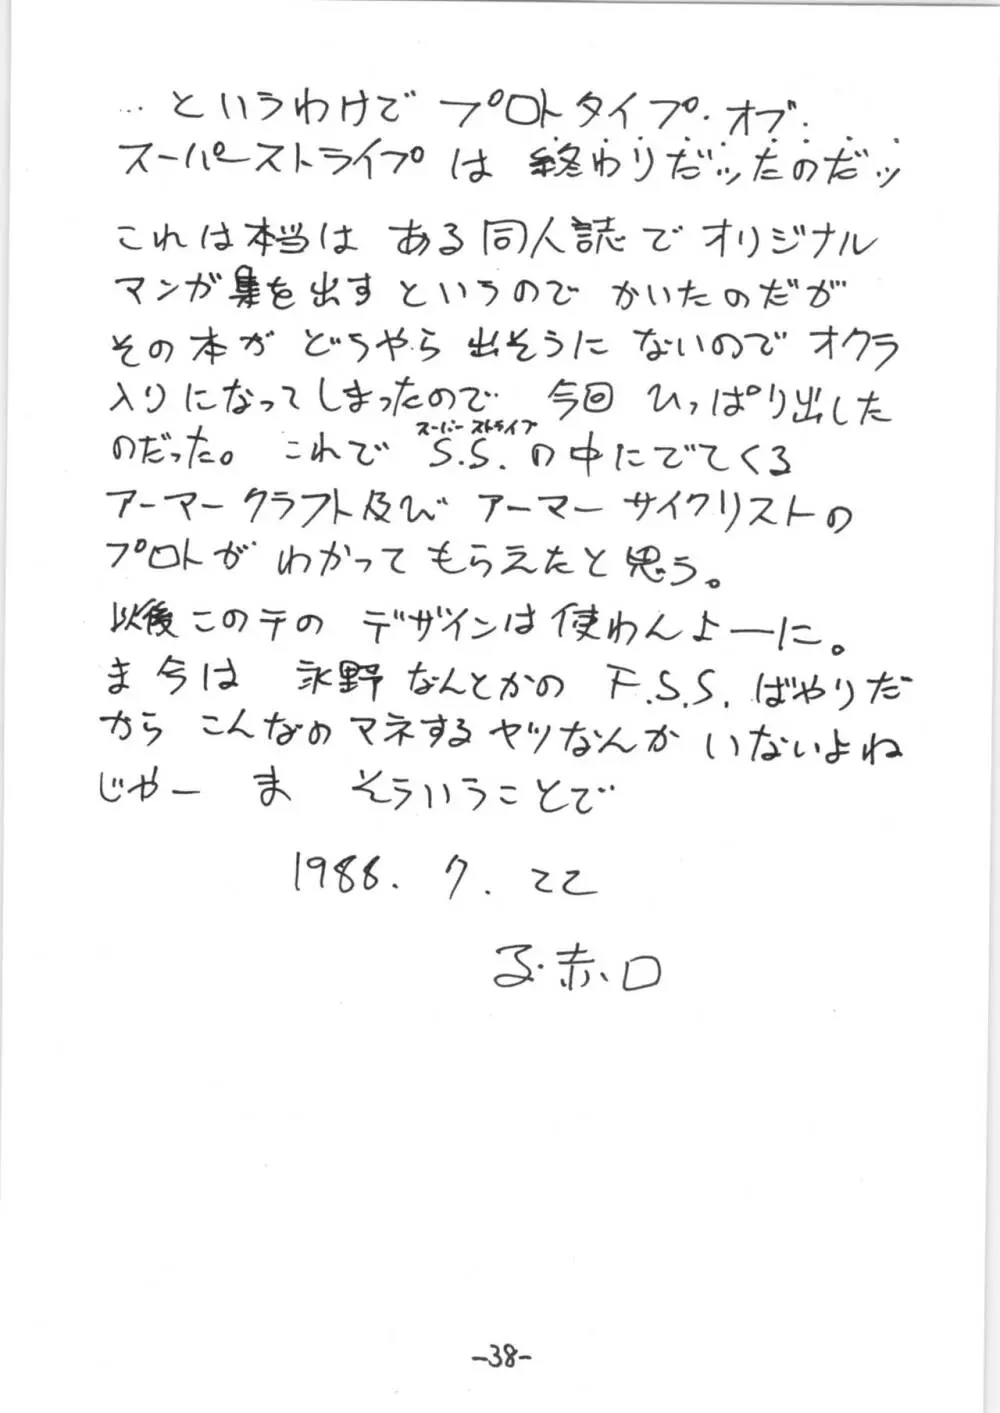 …というわけで プロトタイプ・オブ・
スーパーストライプは 終わりだッたのだッ
これは本当は ある同人誌でオリジナル
マンガ集を出すというので かいたのだが
その本が どうやら 出そうに ないので オクラ
入りになってしまったので 今回 ひっぱり出した
スーパー ストライプ
のだった。 これで S.S. の中にでてくる
アーマークラフト及び アーマーサイクリストの
プロトが わかって もらえたと思う。
以後このテの デザインは使わんよーに。
ま 今は 永野なんとかの F.S.S. ばやりだ
から こんなのマネするヤツなんか いないよね
じゃー ま そういうことで
1988. 7. 22
る・赤・ロ
-38-